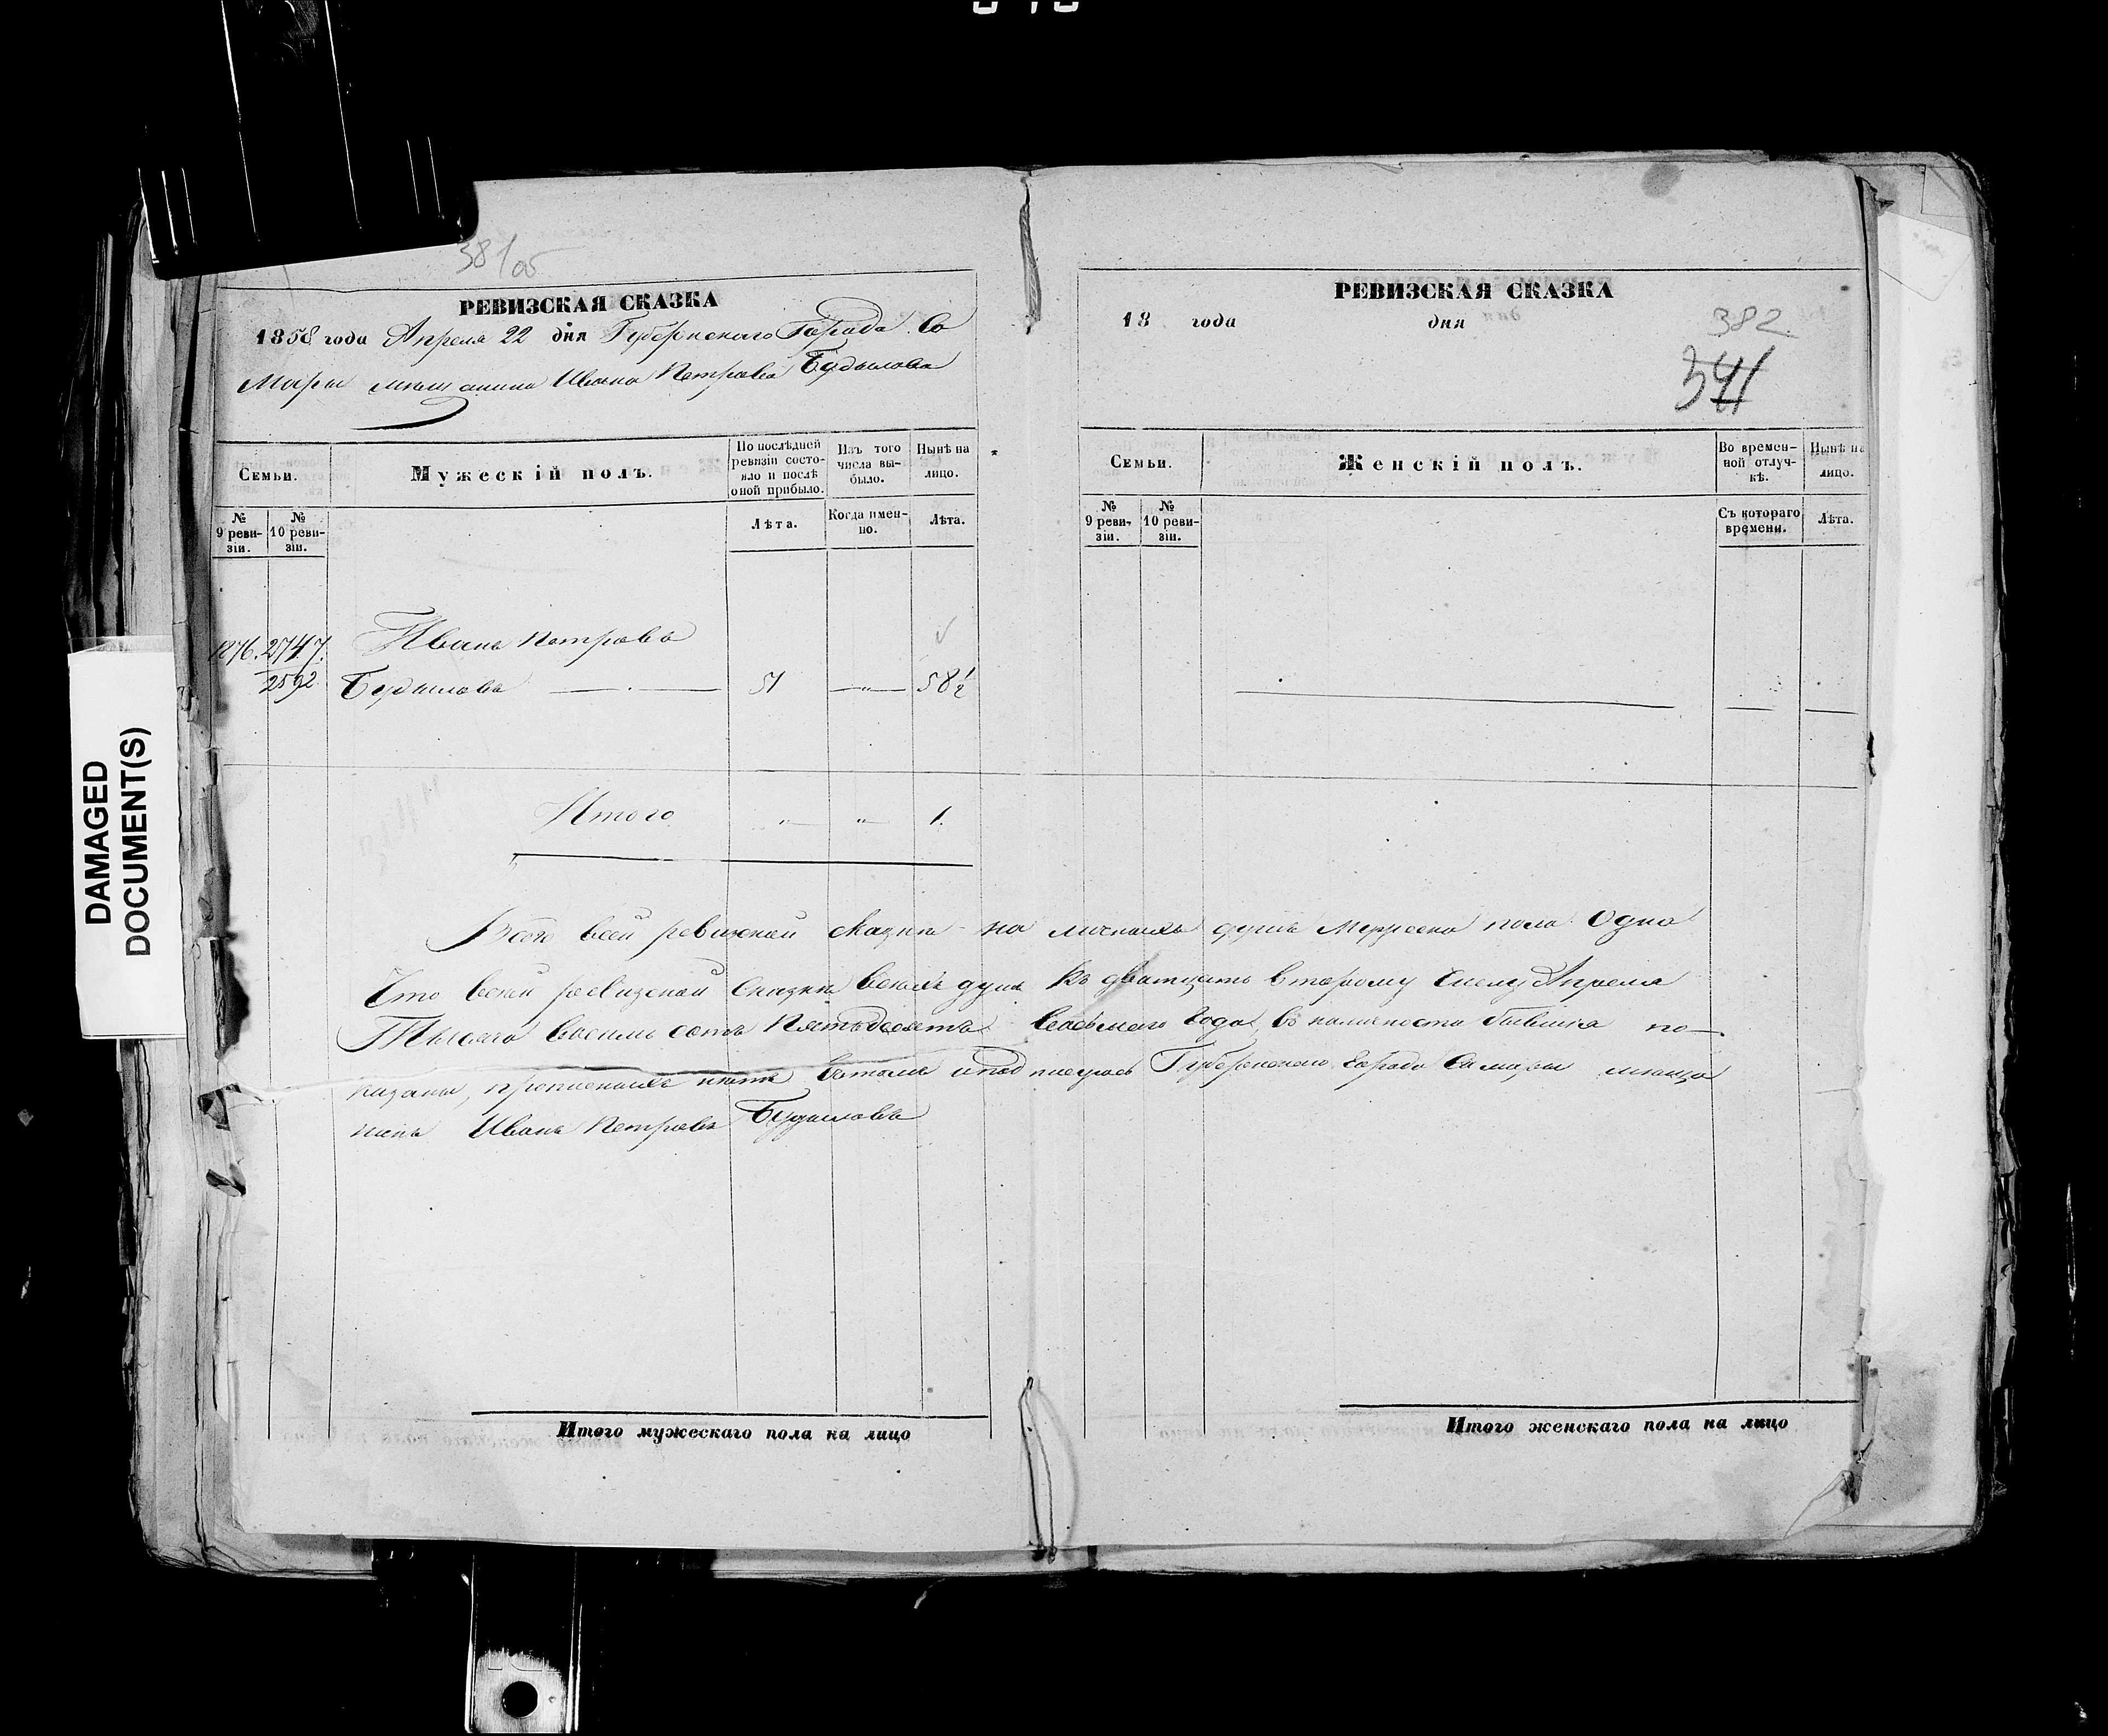 381об
РЕВИЗСКАЯ СКАЗКА
1858 года Апреля 22 дня Губернскаго Города Са
мары мещанина Ивана Петрова Будылова
Семьи.
Мужескій полъ.
По послѣдней ревизіи состояло и послѣ оной прибыло.
Изъ того числа выбыло.
Нынѣ на лицо.
№ 9 ревизіи.
№ 10 ревизіи.
Лѣта.
Когда именно.
Лѣта.
1876. 2747. Иванъ Петровъ
2592 Будыловъ 51 — " — 58½
Итого " " 1.
РЕВИЗСКАЯ СКАЗКА
18 года дня
382
341
Семьи.
Женскій полъ.
Во временной отлучкѣ.
Нынѣ на лицо.
№ 9 ревизіи.
№ 10 ревизіи.
Съ котораго времени.
Лѣта.
Всего всей ревизской сказки на душъ пола Одна
Что всей ревизской сказки душъ къ дватцать второму числу Апреля
Тысяча восемь сотъ Пятьдесятъ восьмаго года, въ по
казаны, нѣтъ вътомъ иподписуюсь Губернскаго Города Самары меща
нинъ Иванъ Петровъ Будыловъ
Итого мужескаго пола на лицо
Итого женскаго пола на лицо
DAMAGED
DOCUMENT(S)